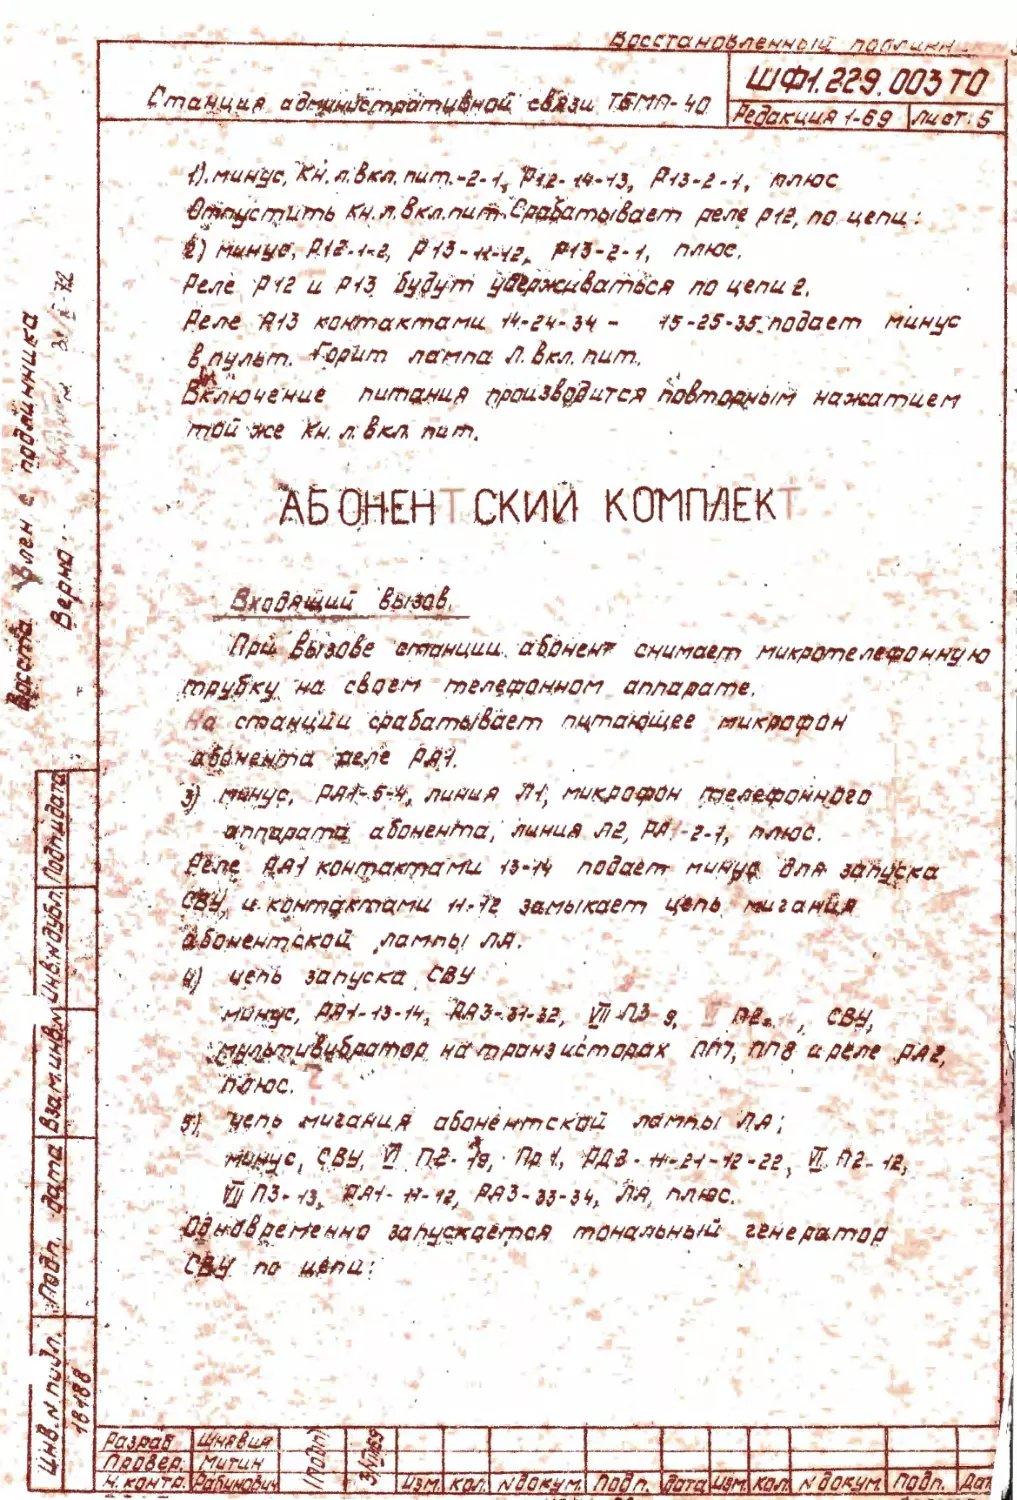 Восстановленный подлинн
Станция административной связи ТБМА-40
ШФ1.229.003 ТО
Редакция 1-69 Лист: 5
1). минус, Кн. л. Вкл. пит.-2-1, Р12-14-13, Р13-2-1, плюс
Отпустить Кн. л. Вкл. пит. Срабатывает реле Р12, по цепи:
2) минус, Р12-1-2, Р13-11-12, Р13-2-1, плюс.
Реле Р12 и Р13 будут удерживаться по цепи 2.
Реле Р13 контактами 14-24-34 - 15-25-35, подает минус
в пульт. Горит лампа Л. Вкл. пит.
Включение питания производится повторным нажатием
той же Кн. л. Вкл. пит.
АБОНЕНТСКИЙ КОМПЛЕКТ
Входящий вызов.
При вызове станции абонент снимает микротелефонную
трубку на своем телефонном аппарате.
На станции срабатывает питающее микрофон
абонента реле РА1.
3) минус, РА1-5-4, линия Л1, микрофон телефонного
аппарата абонента, линия Л2, РА1-2-1, плюс.
Реле РА1 контактами 13-14 подает минус для запуска
СВУ, и контактами 11-12 замыкает цепь мигания
абонентской лампы ЛА.
4) цепь запуска СВУ
минус, РА1-13-14, РА3-31-32, VII П3 9, П2, СВУ,
мультивибратор на транзисторах ПП7, ПП8 и реле РД2,
плюс.
5) цепь мигания абонентской лампы ЛА;
минус, СВУ, VI П2- , Пр1, РД3-11-21-12-22, VI П2-12,
VII П3-13, РА1-11-12, РА3-33-34, ЛА, плюс.
Одновременно запускается тональный генератор
СВУ по цепи:
Восстановлен с подлинника
Верно:
Инв. N подл. Подп. дата Взам. инв. N Инв. N дубл. Подп. и дата
18188
Разраб Шнявин
Провер. Митин
Н. контр. Рабинович
Изм. кол. N докум. Подп. Дата Изм. кол. N докум. Подп. Дат